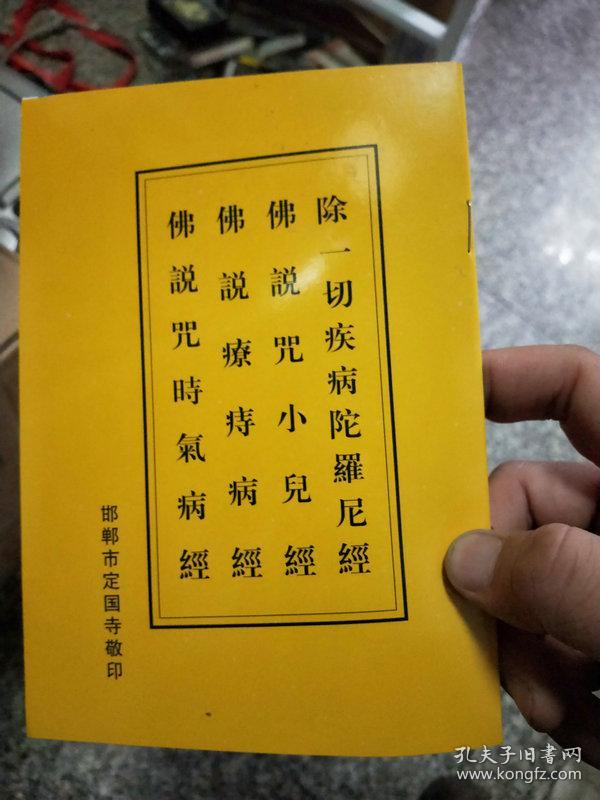 除一切疾病陀羅尼經
佛説咒小兒經
佛説療痔病經
佛説咒時氣病經
邯郸市定国寺敬印
孔夫子旧書网
www.kongfz.com